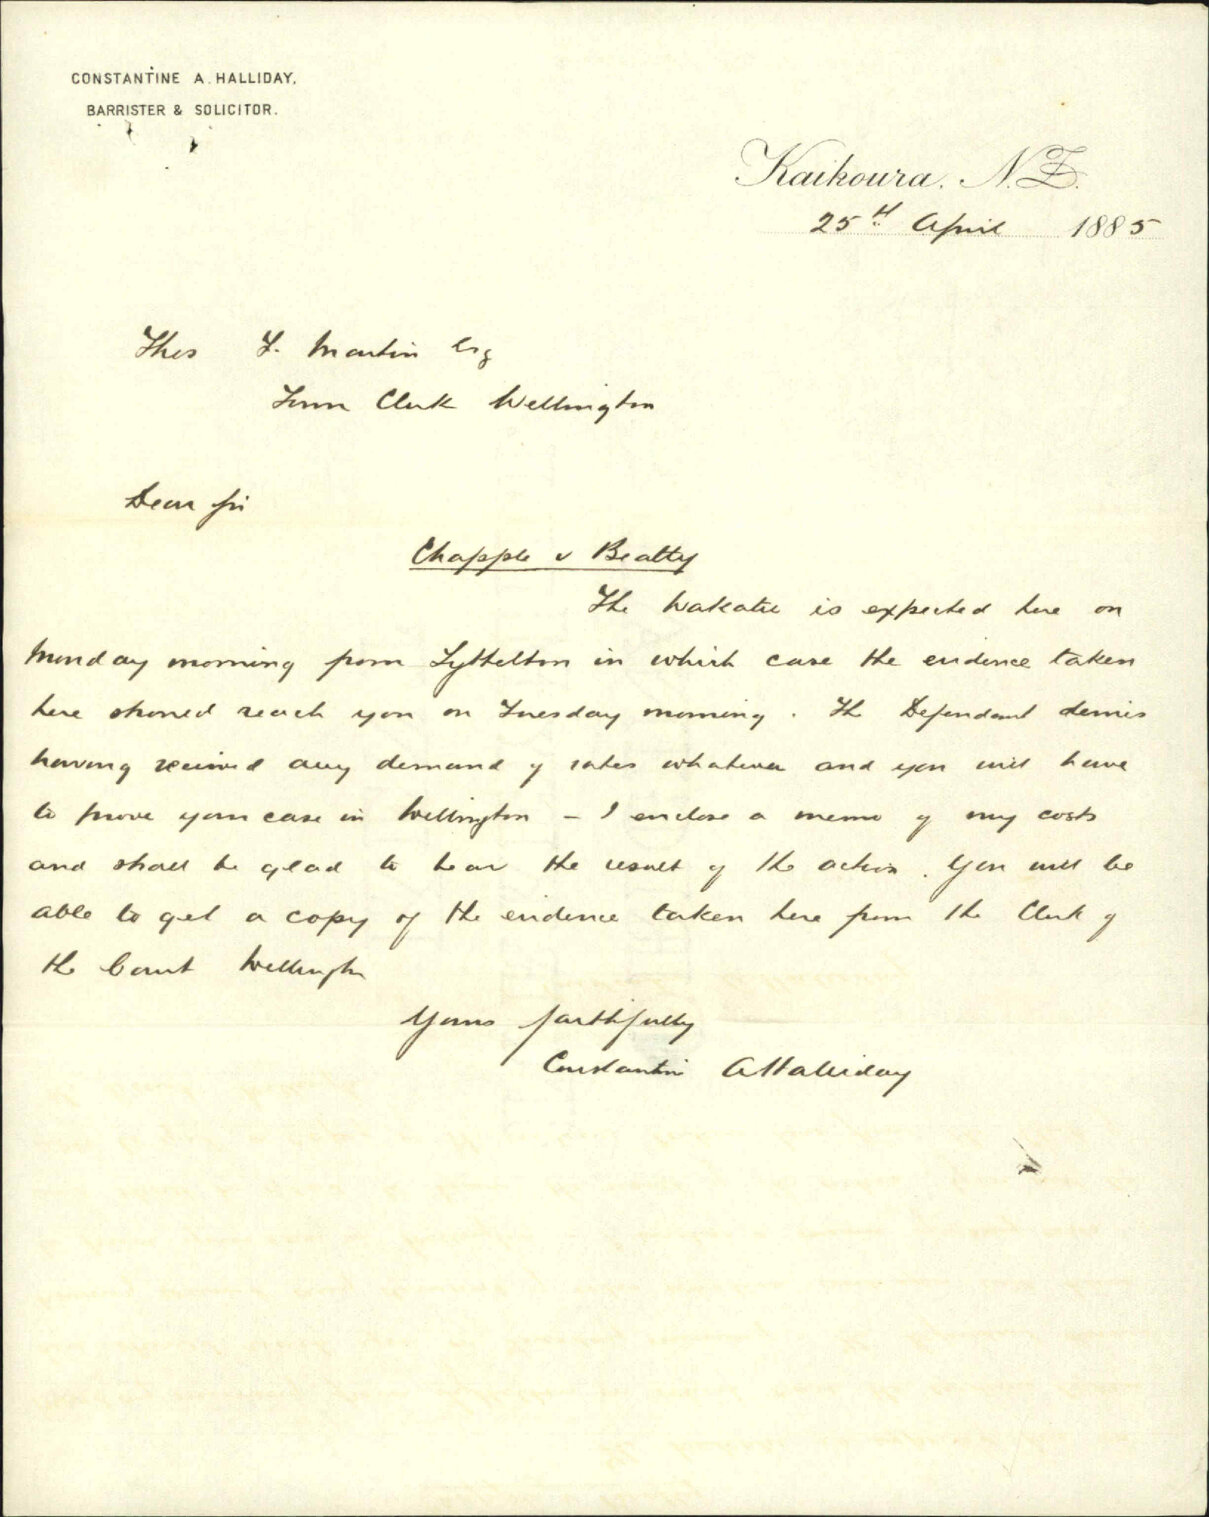 CONSTANTINE A. HALLIDAY,
BARRISTER & SOLICITOR.
Kaikoura, N.Z.
25th April 1885
Thos F. Martin Esq
Town Clerk Wellington
Dear Sir
Chapple v Beatty
The Wakatu is expected here on
Monday morning from Lyttelton in which case the evidence taken
here should reach you on Tuesday morning. The Defendant denies
having received any demand of rates whatever and you will have
to prove your case in Wellington – I enclose a memo of my costs
and shall be glad to hear the result of the action. You will be
able to get a copy of the evidence taken here from the Clerk of
the Court Wellington
Yours faithfully
Constantine A Halliday